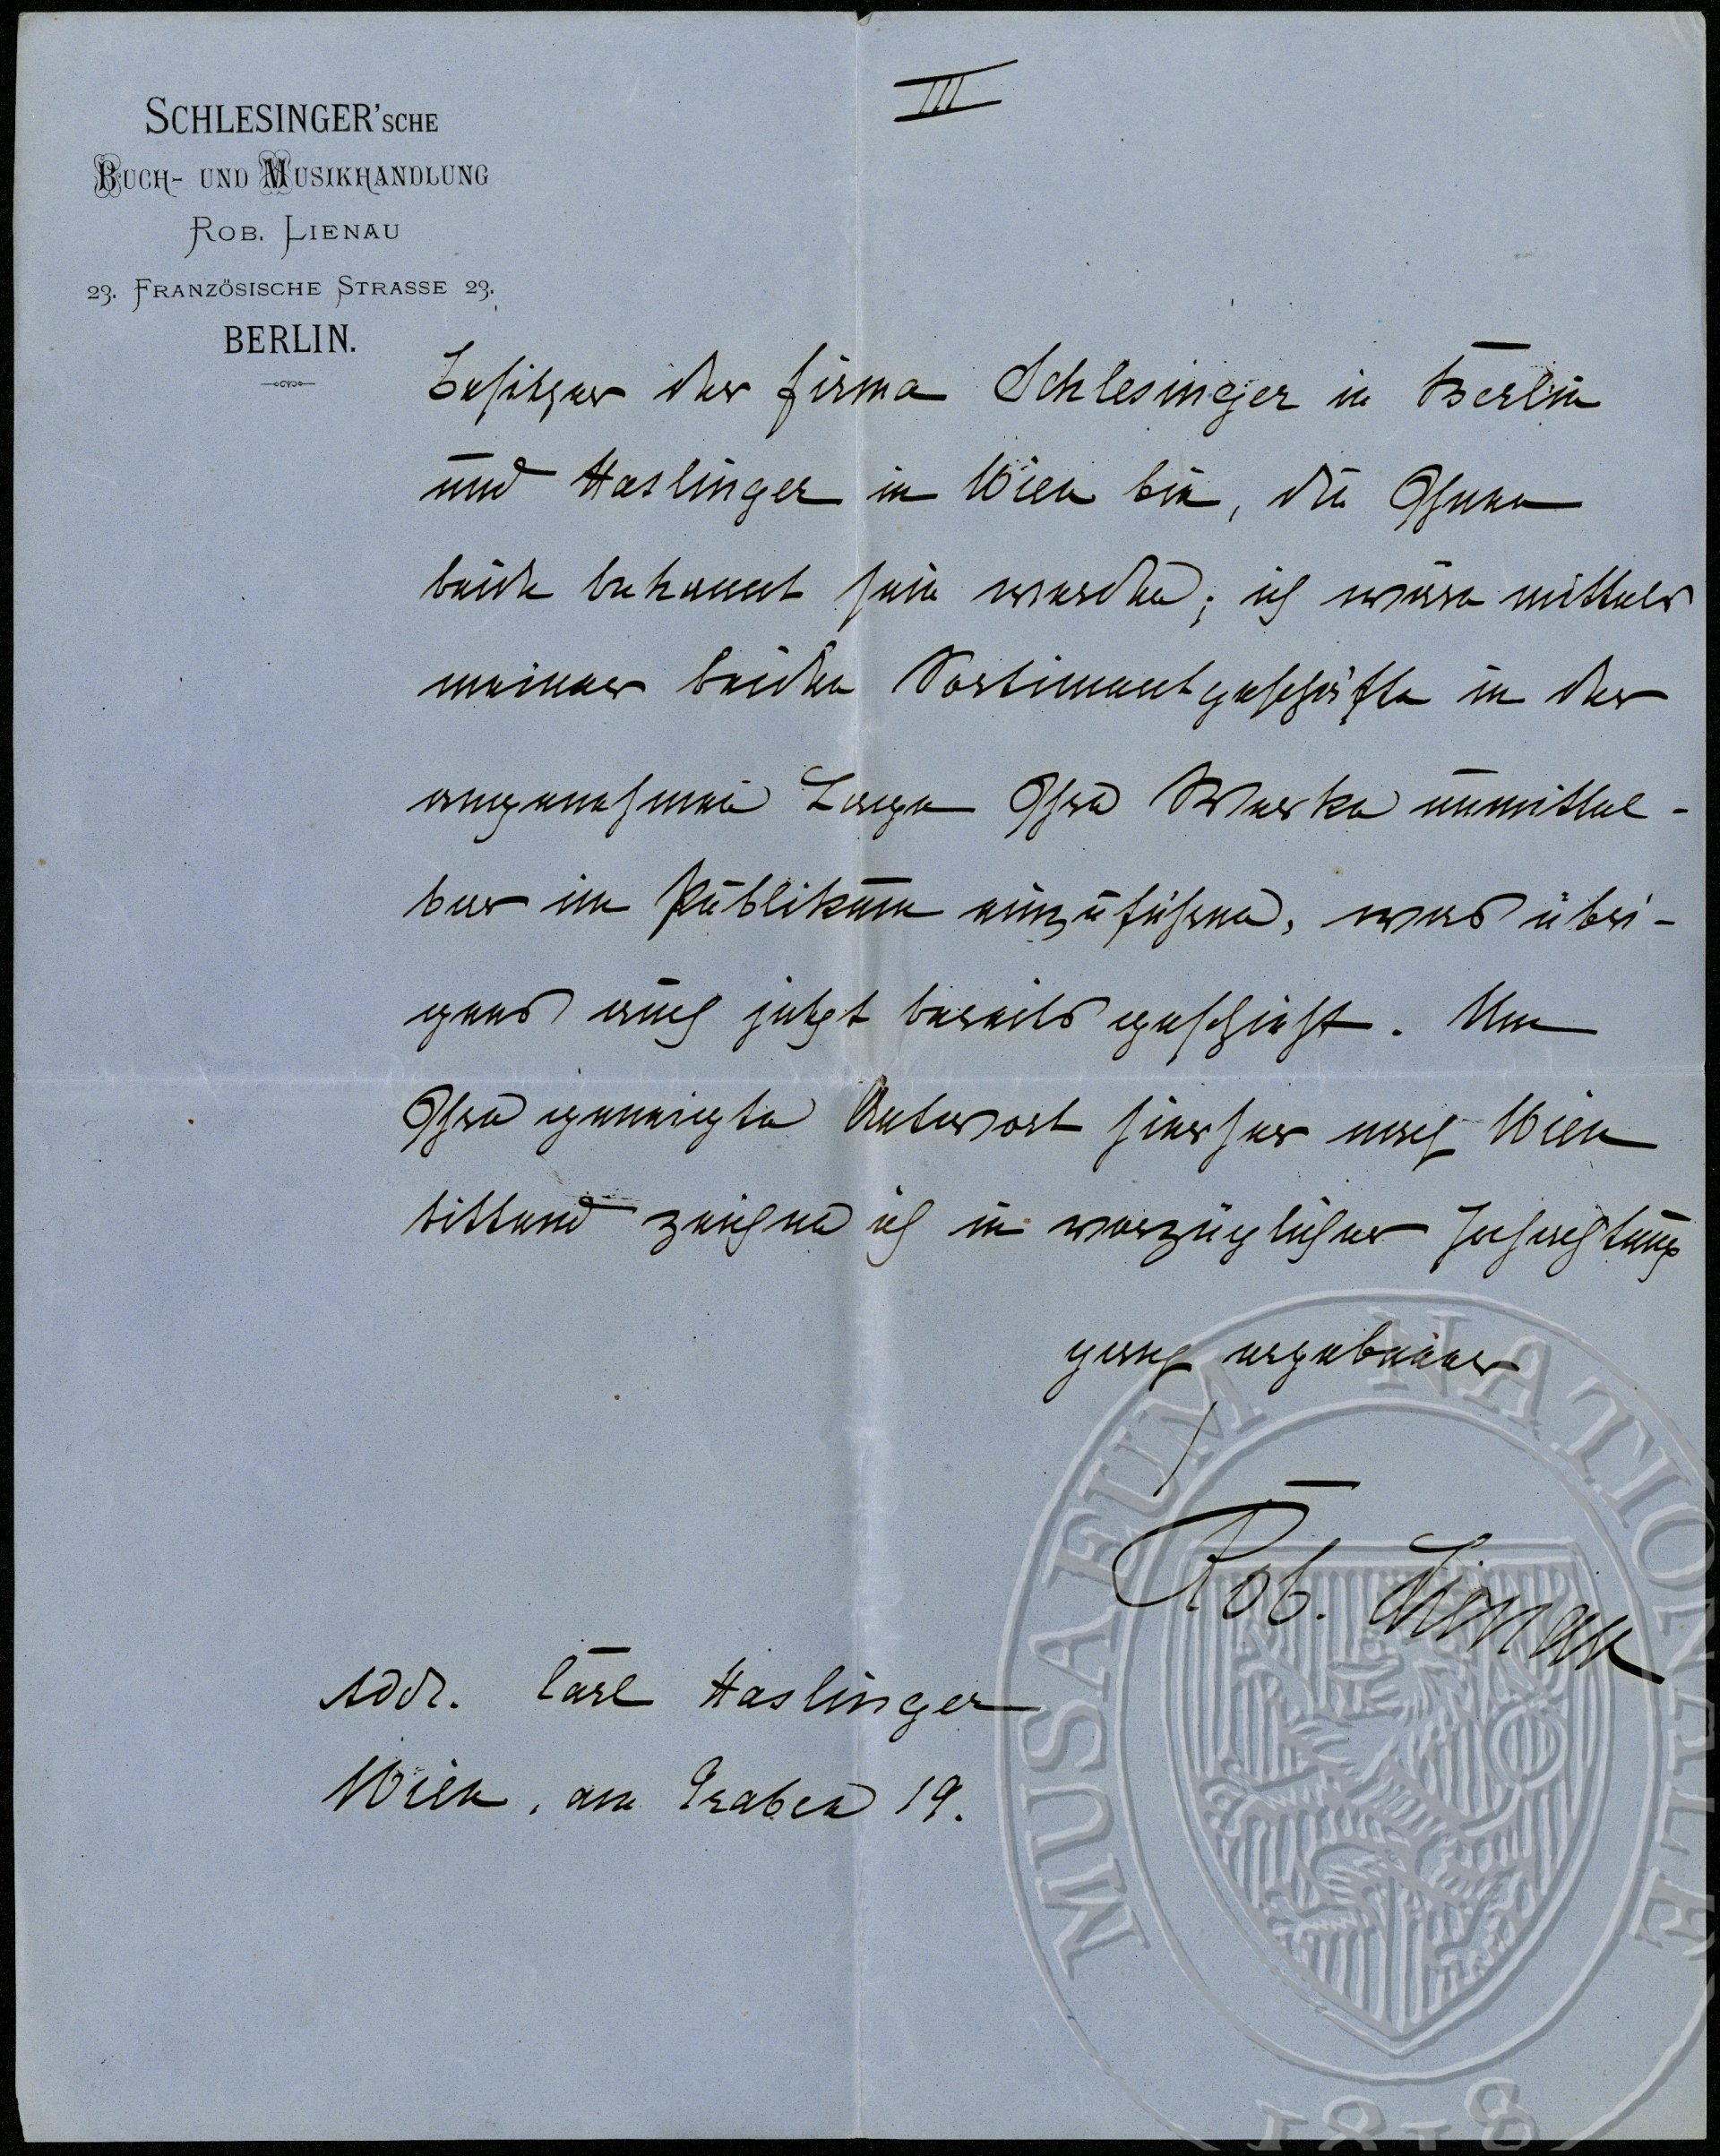 SCHLESINGER'SCHE
BUCH- UND MUSIKHANDLUNG
ROB. LIENAU
23. FRANZÖSISCHE STRASSE 23.
BERLIN.
III
Besitzer der Firma Schlesinger in Berlin
und Haslinger in Wien bin, die Ihnen
beide bekannt sein werden; ich wäre mittels
meiner beiden Sortimentgeschäfte in der
angenehmen Lage Ihre Werke unmittel-
bar im Publikum einzuführen, was übri-
gens auch jetzt bereits geschieht. Um
Ihre geneigte Antwort hierher nach Wien
bittend zeichne ich in vorzüglicher Hochachtung
ganz ergebener
Rob. Lienau
Addr. Carl Haslinger
Wien, am Graben 19.
MUSAEUM NATIONALE
1818